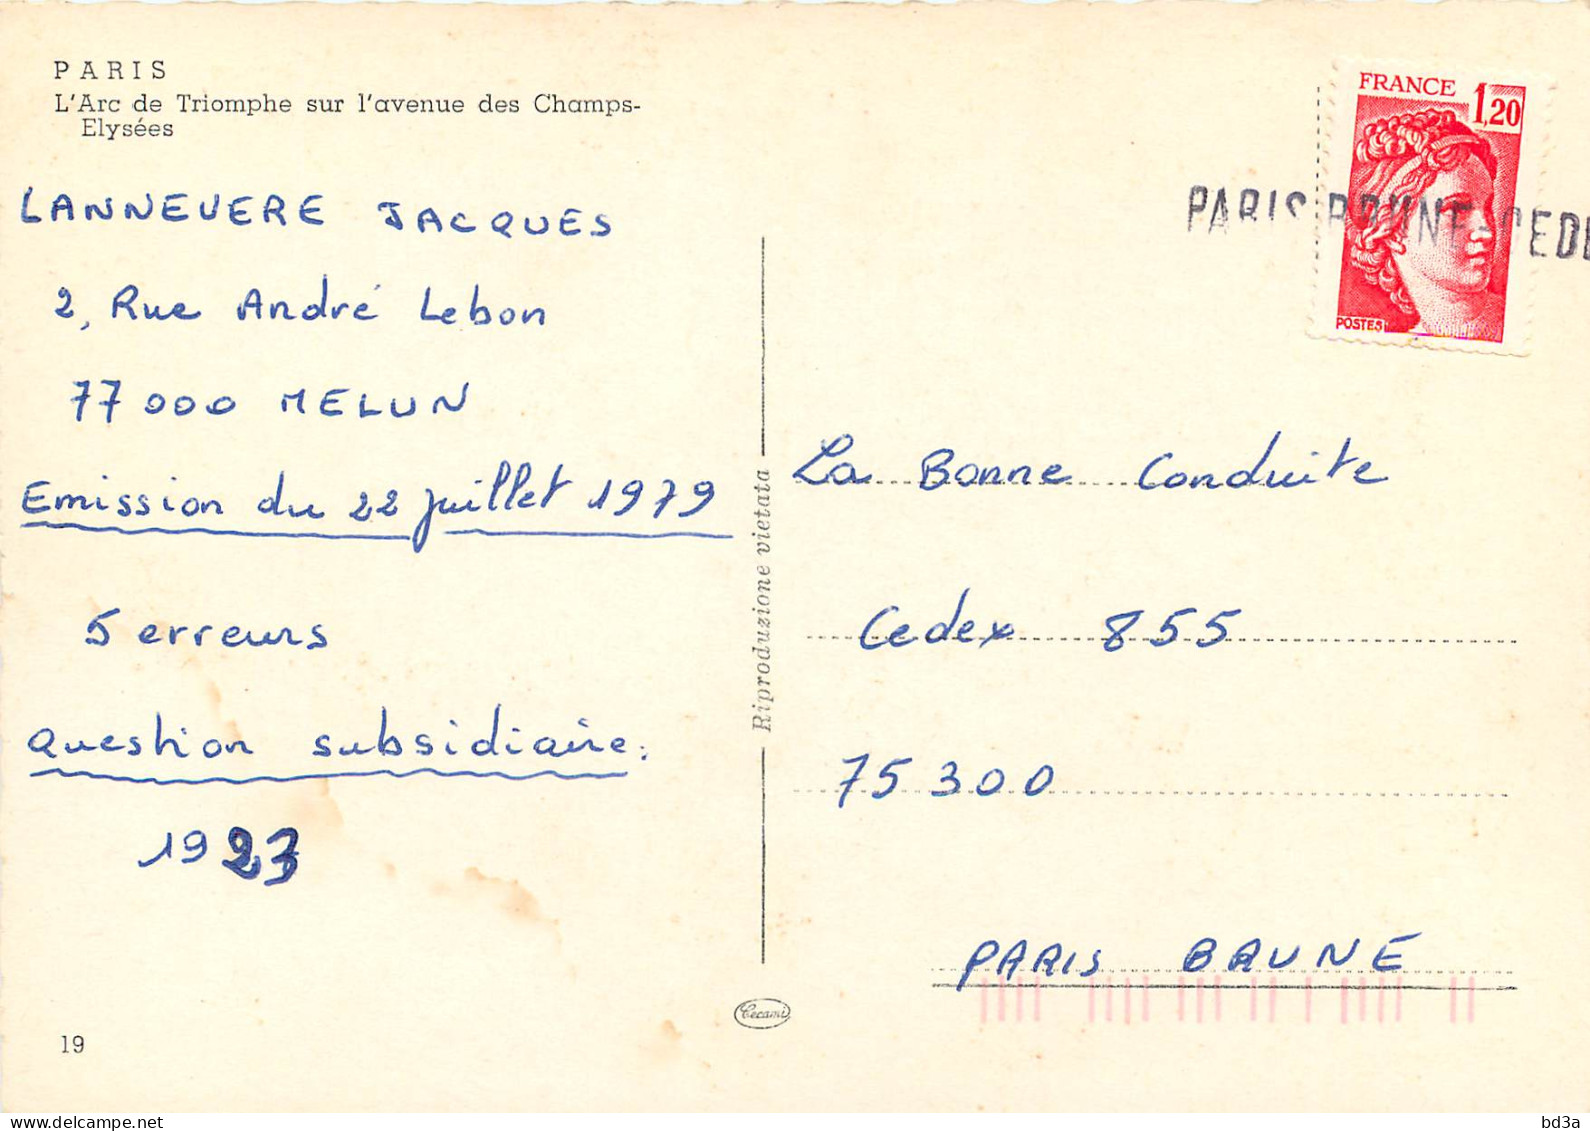 PARIS
L'Arc de Triomphe sur l'avenue des Champs-
Elysées
LANNEVERE JACQUES
2, Rue André Lebon
77000 MELUN
Emission du 22 juillet 1979
5 erreurs
question subsidiaire:
1923
19
Riproduzione vietata
Cecami
FRANCE 1,20
POSTES
PARIS BRUNE CEDE
La Bonne Conduite
Cedex 855
75300
PARIS BRUNE
bd3a